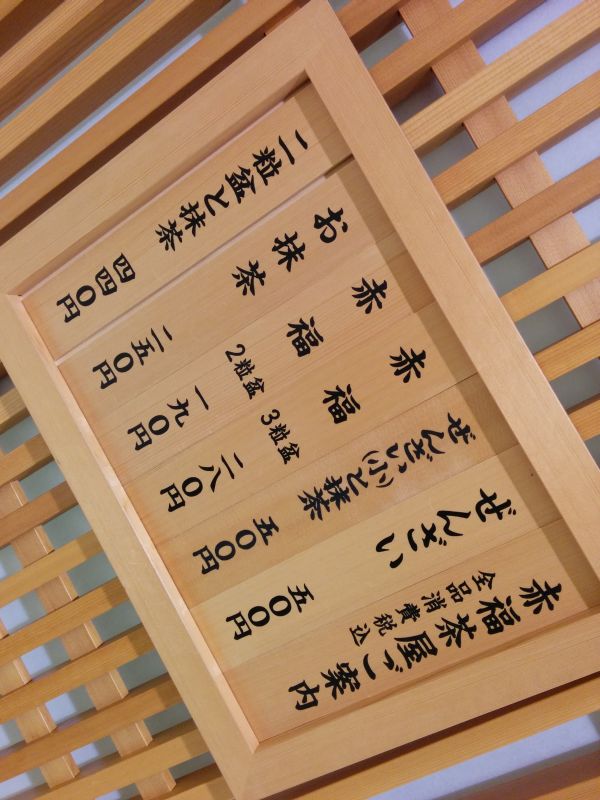 赤福茶屋ご案内
全品消費税込
ぜんざい 五〇〇円
ぜんざい(小)と抹茶 五〇〇円
赤福 3粒盆 二八〇円
赤福 2粒盆 一九〇円
お抹茶 二五〇円
二粒盆と抹茶 四四〇円